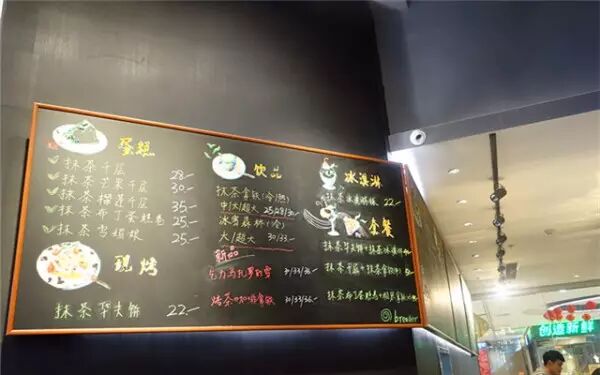 蛋糕
抹茶千层 28-
抹茶芒果千层 30-
抹茶榴莲千层 35-
抹茶布丁蛋糕卷 25-
抹茶雪媚娘 25-
现烤
抹茶华夫饼 22-
饮品
抹茶拿铁(冷/热)
中/大/超大 25/28/30-
冰雪森林(冷)
大/超大 30/33-
新品
巧力 31/33/35-
烤茶咖啡拿铁 30/33/36-
冰淇淋
抹茶冰淇淋 22-
套餐
抹茶华夫饼+抹茶冰淇淋
抹茶千层+抹茶拿铁
抹茶布丁蛋糕卷+
brewler
创造新鲜